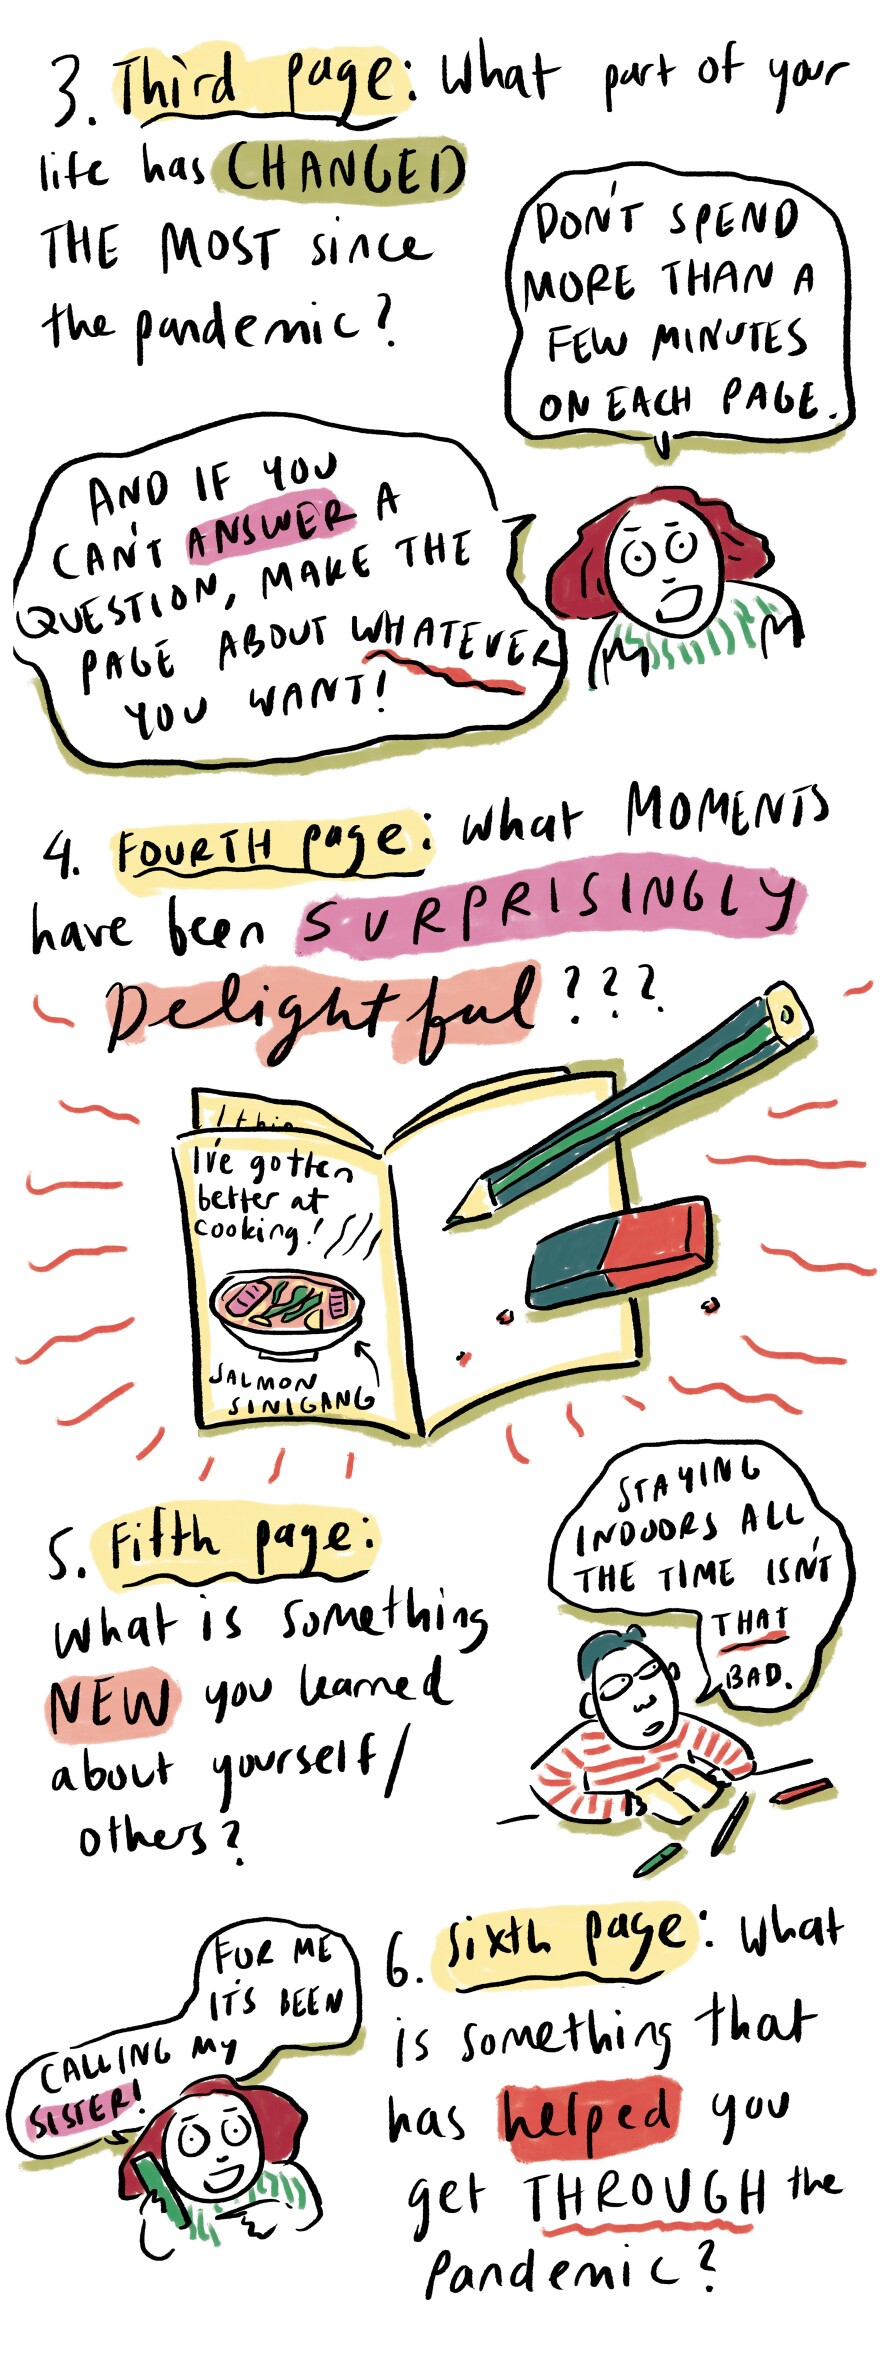 3. Third page: What part of your
life has CHANGED
THE MOST since
the pandemic?
DON'T SPEND
MORE THAN A
FEW MINUTES
ON EACH PAGE.
AND IF YOU
CAN'T ANSWER A
QUESTION, MAKE THE
PAGE ABOUT WHATEVER
YOU WANT!
4. FOURTH page: what MOMENTS
have been SURPRISINGLY
Delightful???
I thin
I've gotten
better at
cooking!
SALMON
SINIGANG
5. Fifth page:
What is something
NEW you learned
about yourself/
others?
STAYING
INDOORS ALL
THE TIME ISN'T
THAT
BAD.
FOR ME
IT'S BEEN
CALLING MY
SISTER!
6. Sixth page: What
is something that
has helped you
get THROUGH the
pandemic?